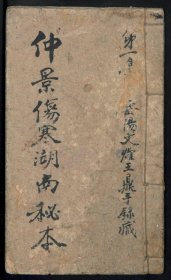 第一本
岳陽文煌王鼎手錄藏
仲景傷寒湖南秘本